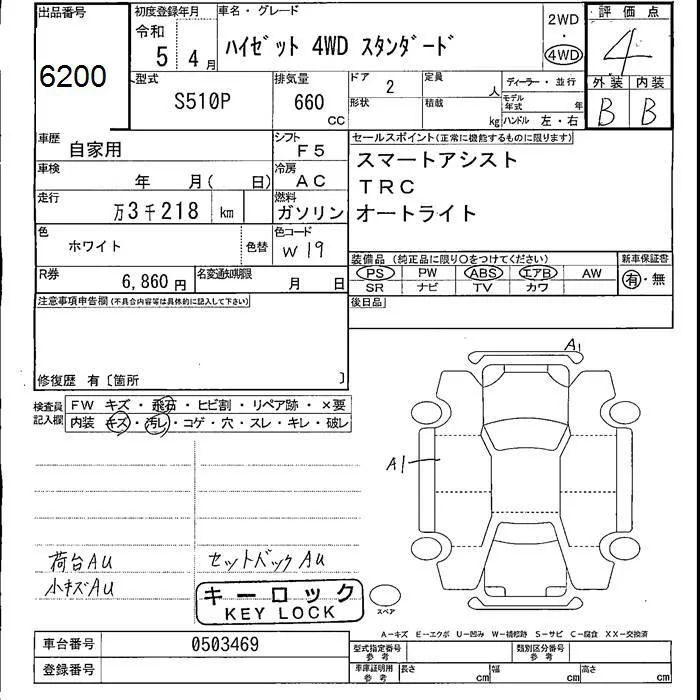 出品番号
6200
初度登録年月
令和
5 4月
車名・グレード
ハイゼット 4WD スタンダード
2WD
・
4WD
評価点
4
外装 内装
B B
型式
S510P
排気量
660
CC
ドア 2
形状
定員
人
積載
kg
ディーラー・並行
モデル年式 年
ハンドル 左・右
車歴
自家用
シフト
F5
車検
年 月( 日)
冷房
AC
走行
万3千218 km
燃料
ガソリン
色
ホワイト
色替
色コード
W19
R券
6,860円
名変通知期限
月 日
セールスポイント(正常に機能するものに限ります)
スマートアシスト
TRC
オートライト
装備品(純正品に限り○をつけてください)
PS PW ABS エアB AW
SR ナビ TV カワ
新車保証書
有・無
後日品
注意事項申告欄(不具合内容等は具体的に記入して下さい)
修復歴 有〔箇所 〕
検査員記入欄
FW キズ・飛石・ヒビ割・リペア跡・×要
内装 キズ・汚レ・コゲ・穴・スレ・キレ・破レ
A1
A1
荷台AU
小キズAU
セットバックAU
キーロック
KEY LOCK
スペア
A−キズ E−エクボ U−凹み W−補修跡 S−サビ C−腐食 XX−交換済
車台番号
0503469
登録番号
型式指定番号
参考
類別区分番号
参考
車庫証明用
参考
長さ cm
幅 cm
高さ cm